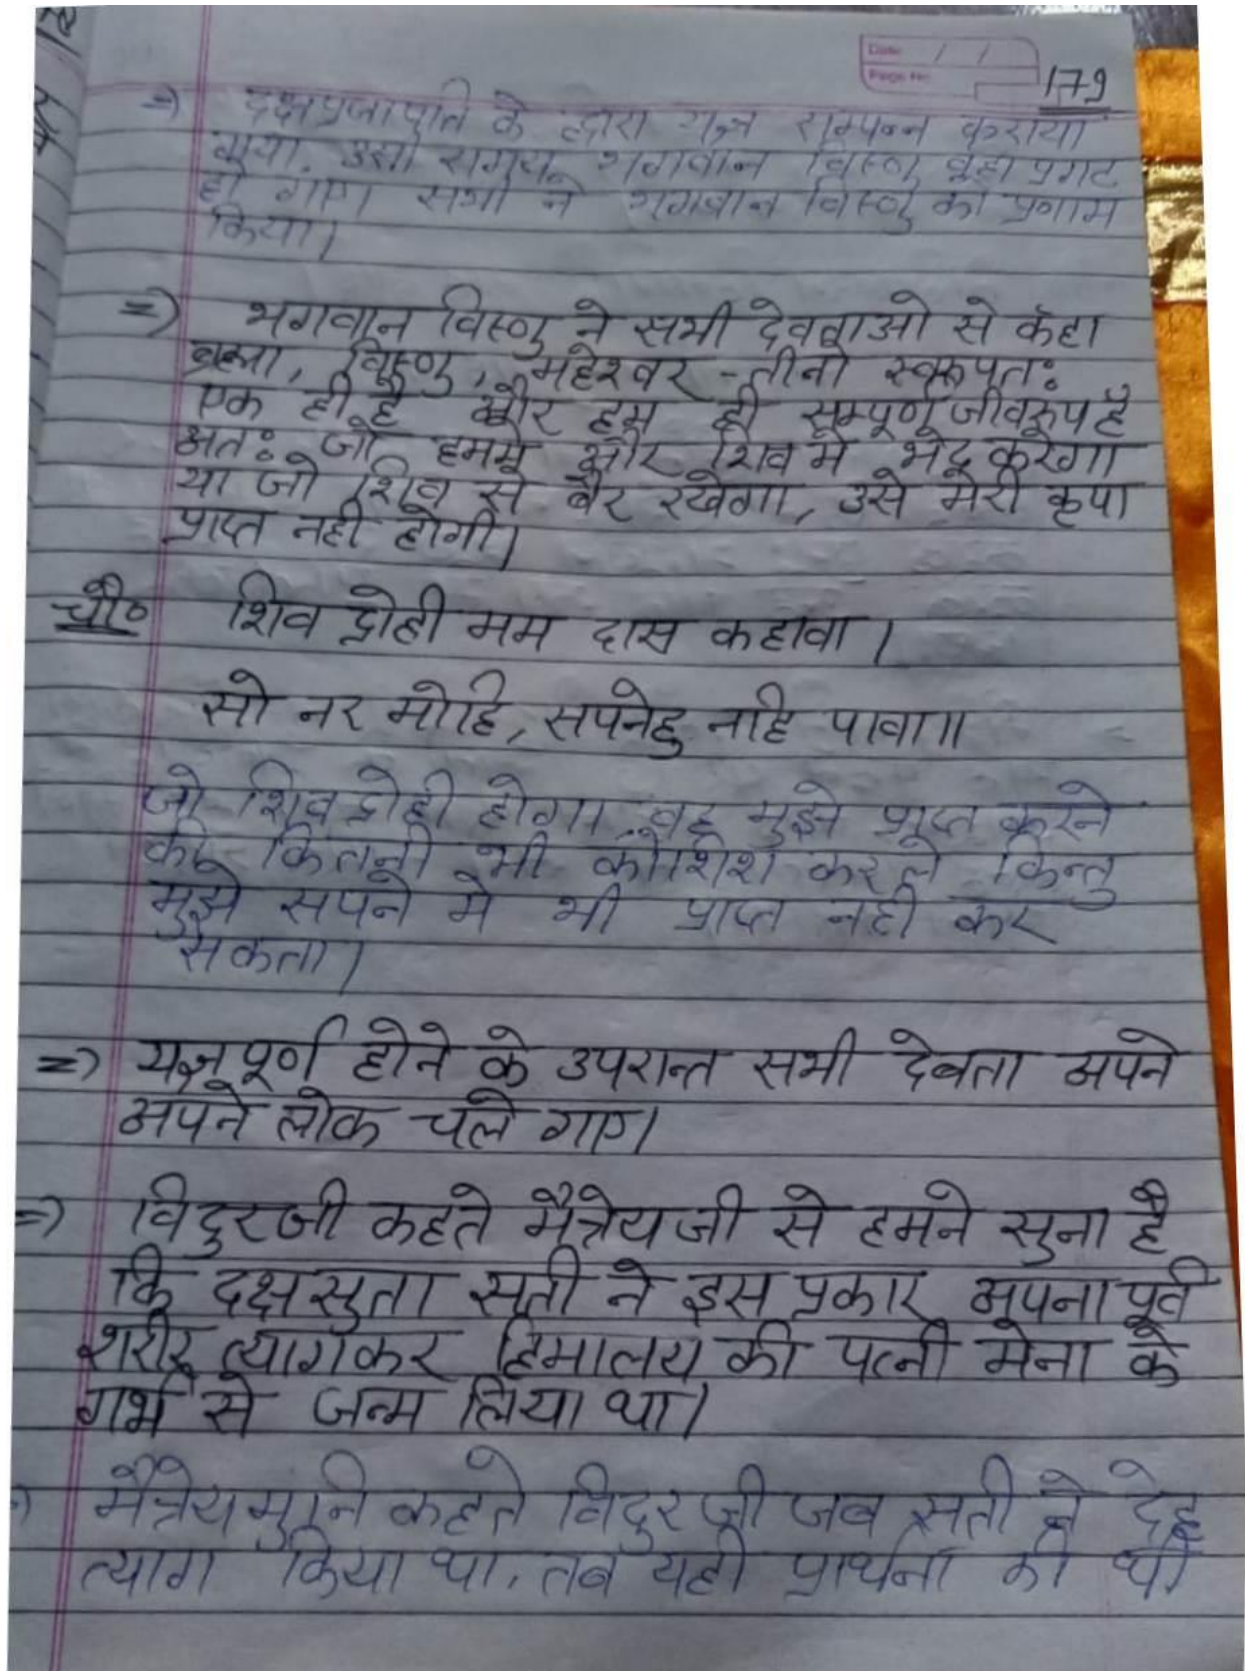 Date / /
Page No.
179
=> दक्षप्रजापति के द्वारा यज्ञ सम्पन्न कराया
गया, उसी समय भगवान विष्णु वहा प्रगट
हो गए। सभी ने भगवान विष्णु को प्रणाम
किया।
=> भगवान विष्णु ने सभी देवताओ से कहा
ब्रह्मा, विष्णु, महेश्वर - तीनो स्वरूपतः
एक ही है और हम ही सम्पूर्ण जीवरूप है
अतः जो हममे और शिव मे भेद करेगा
या जो शिव से बैर रखेगा, उसे मेरी कृपा
प्राप्त नही होगी।
चौ० शिव द्रोही मम दास कहावा।
सो नर मोहि, सपनेहु नहि पावा॥
जो शिव द्रोही होगा, वह मुझे प्राप्त करने
की कितनी भी कोशिश करले किन्तु
मुझे सपने मे भी प्राप्त नही कर
सकता।
=> यज्ञ पूर्ण होने के उपरान्त सभी देवता अपने
अपने लोक चले गए।
=> विदुरजी कहते मैत्रेय जी से हमने सुना है
कि दक्षसुता सती ने इस प्रकार अपना पूर्व
शरीर त्यागकर हिमालय की पत्नी मेना के
गर्भ से जन्म लिया था।
मैत्रेय मुनि कहते विदुर जी जब सती ने देह
त्याग किया था, तब यही प्रार्थना की थी